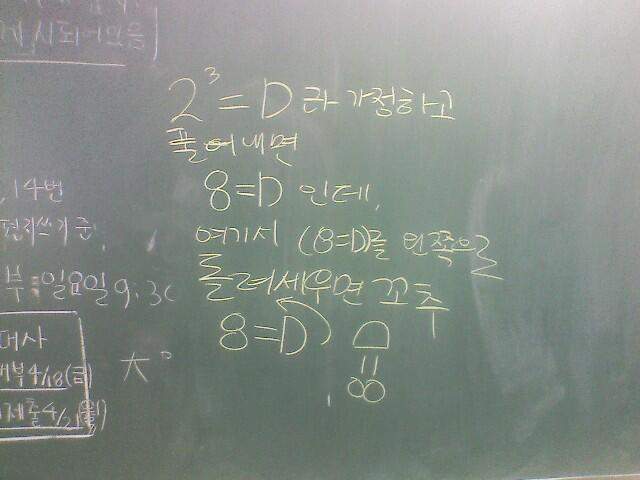 게시되어있음
2³ = D 라 가정하고
풀어내면
8=D 인데,
여기서 (8=D)를 왼쪽으로
돌려세우면 꼬추
8=D
14번
편지쓰기 준
부 일요일 9:30
대사
4/18(금)
제출 4/21(월)